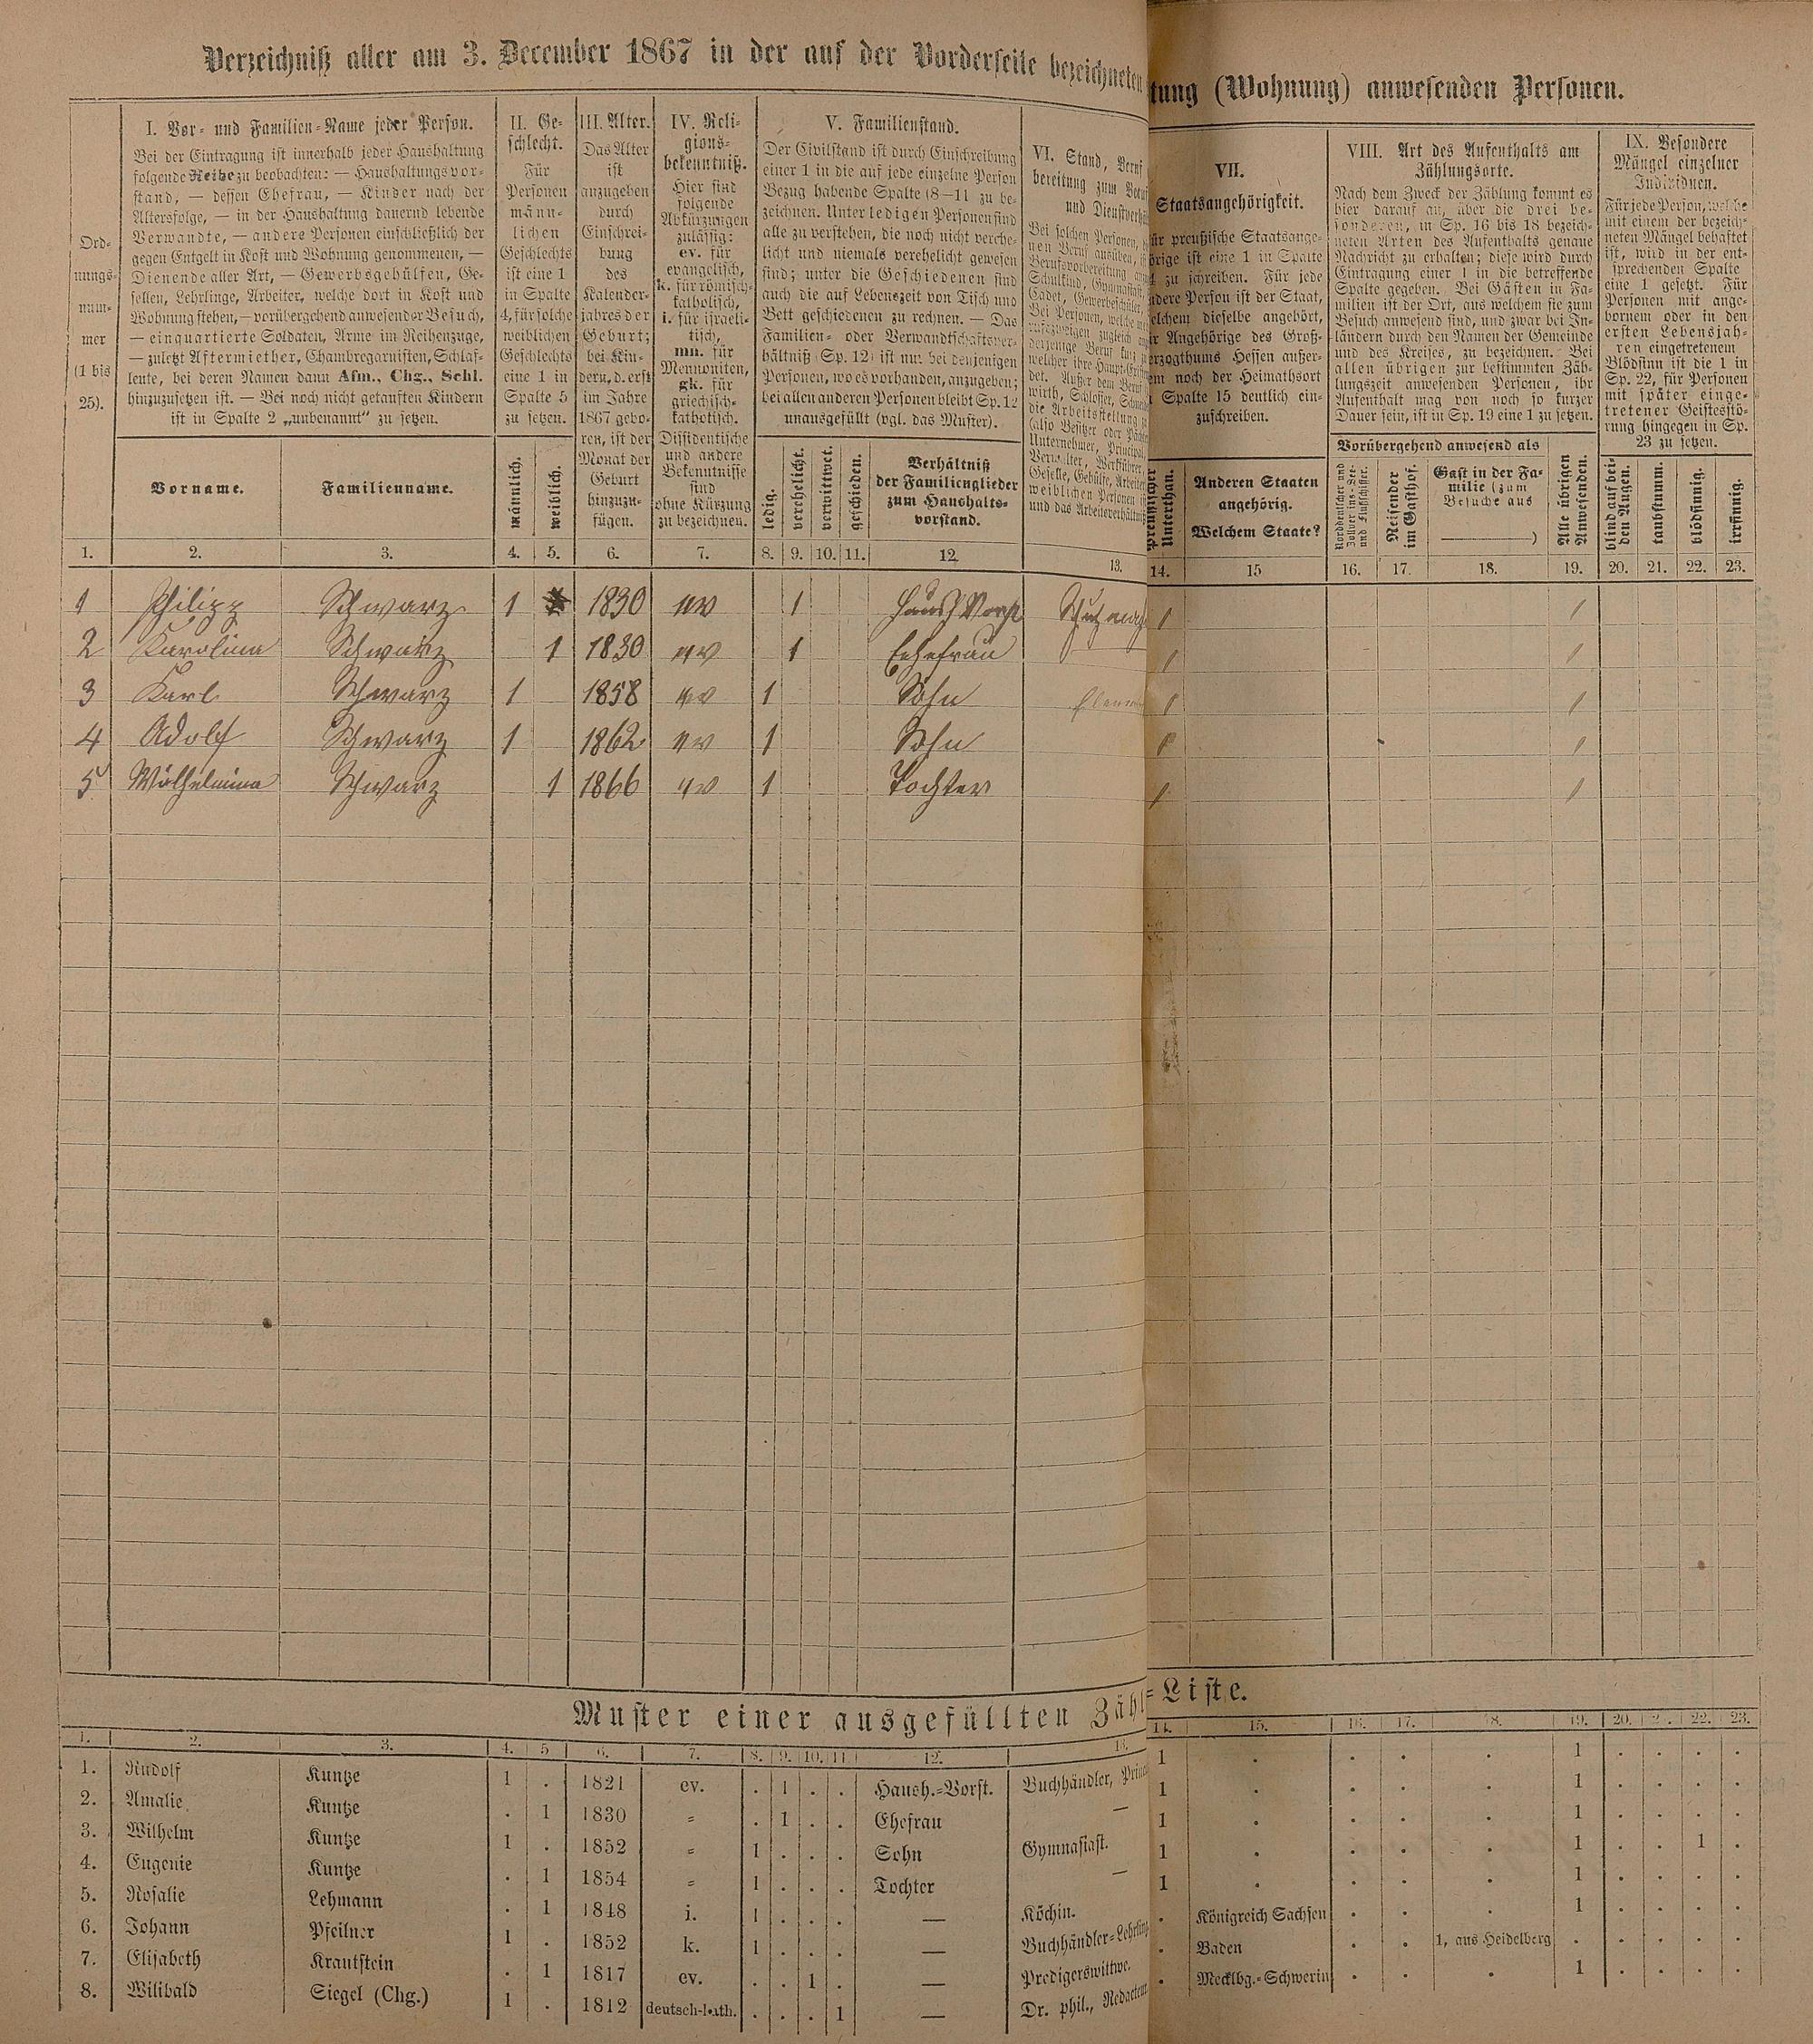 Verzeichniß aller am 3. December 1867 in der auf der Vorderseite bezeichneten
tung (Wohnung) anwesenden Personen.
Ord-
nungs-
num-
mer
(1 bis
25).
I. Vor- und Familien-Name jeder Person.
Bei der Eintragung ist innerhalb jeder Haushaltung
folgende Reihe zu beobachten: — Haushaltungsvor-
stand, — dessen Ehefrau, — Kinder nach der
Altersfolge, — in der Haushaltung dauernd lebende
Verwandte, — andere Personen einschließlich der
gegen Entgelt in Kost und Wohnung genommenen, —
Dienende aller Art, — Gewerbsgehülfen, Ge-
sellen, Lehrlinge, Arbeiter, welche dort in Kost und
Wohnung stehen, — vorübergehend anwesender Besuch,
— einquartierte Soldaten, Arme im Reihenzuge,
— zuletzt Aftermiether, Chambregarnisten, Schlaf-
leute, bei deren Namen dann Afm., Chg., Schl.
hinzuzusetzen ist. — Bei noch nicht getauften Kindern
ist in Spalte 2 „unbenannt" zu setzen.
Vorname.
Familienname.
II. Ge-
schlecht.
Für
Personen
männ-
lichen
Geschlechts
ist eine 1
in Spalte
4, für solche
weiblichen
Geschlechts
eine 1 in
Spalte 5
zu setzen.
männlich.
weiblich.
III. Alter.
Das Alter
ist
anzugeben
durch
Einschrei-
bung
des
Kalender-
jahres der
Geburt;
bei Kin-
dern, d. erst
im Jahre
1867 gebo-
ren, ist der
Monat der
Geburt
hinzuzu-
fügen.
IV. Reli-
gions-
bekenntniß.
Hier sind
folgende
Abkürzungen
zulässig:
ev. für
evangelisch,
k. für römisch-
katholisch,
i. für israeli-
tisch,
mn. für
Mennoniten,
gk. für
griechisch-
katholisch.
Dissidentische
und andere
Bekenntnisse
sind
ohne Kürzung
zu bezeichnen.
V. Familienstand.
Der Civilstand ist durch Einschreibung
einer 1 in die auf jede einzelne Person
Bezug habende Spalte (8—11) zu be-
zeichnen. Unter ledigen Personen sind
alle zu verstehen, die noch nicht verehe-
licht und niemals verehelicht gewesen
sind; unter die Geschiedenen sind
auch die auf Lebenszeit von Tisch und
Bett geschiedenen zu rechnen. — Das
Familien- oder Verwandtschaftsver-
hältniß (Sp. 12) ist nur bei denjenigen
Personen, wo es vorhanden, anzugeben;
bei allen anderen Personen bleibt Sp. 12
unausgefüllt (vgl. das Muster).
ledig.
verehelicht.
verwittwet.
geschieden.
Verhältniß
der Familienglieder
zum Haushalts-
vorstand.
VI. Stand, Beruf
bereitung zum Beruf
und Dienstverhält
Bei solchen Personen,
nen Beruf ausüben, ist
Berufsvorbereitung
Schulkind, Gymnasiast,
Cadet, Gewerbeschüler,
Bei Personen, welche
rufszweigen zugleich
derjenige Beruf
welcher ihre Haupt-
det. Außer dem Beruf
wirth, Schlosser, Schneider
die Arbeitsstellung
(also Besitzer oder Pächter
Unternehmer, Principal,
Verwalter, Werkführer,
Geselle, Gehülfe, Arbeiter
weiblichen Personen
und das Arbeitsverhältniß
VII.
Staatsangehörigkeit.
ür preußische Staatsange-
örige ist eine 1 in Spalte
4 zu schreiben. Für jede
ndere Person ist der Staat,
elchem dieselbe angehört,
ür Angehörige des Groß-
erzogthums Hessen außer-
em noch der Heimathsort
Spalte 15 deutlich ein-
zuschreiben.
preußischer
Unterthan.
Anderen Staaten
angehörig.
Welchem Staate?
VIII. Art des Aufenthalts am
Zählungsorte.
Nach dem Zweck der Zählung kommt es
hier darauf an, über die drei be-
sonderen, in Sp. 16 bis 18 bezeich-
neten Arten des Aufenthalts genaue
Nachricht zu erhalten; diese wird durch
Eintragung einer 1 in die betreffende
Spalte gegeben. Bei Gästen in Fa-
milien ist der Ort, aus welchem sie zum
Besuch anwesend sind, und zwar bei In-
ländern durch den Namen der Gemeinde
und des Kreises, zu bezeichnen. Bei
allen übrigen zur bestimmten Zäh-
lungszeit anwesenden Personen, ihr
Aufenthalt mag von noch so kurzer
Dauer sein, ist in Sp. 19 eine 1 zu setzen.
Vorübergehend anwesend als
Norddeutscher und
Zollver ins- See-
und Flußschiffer.
Reisender
im Gasthof.
Gast in der Fa-
milie (zum
Besuche aus
)
Alle übrigen
Anwesenden.
IX. Besondere
Mängel einzelner
Individuen.
Für jede Person, welche
mit einem der bezeich-
neten Mängel behaftet
ist, wird in der ent-
sprechenden Spalte
eine 1 gesetzt. Für
Personen mit ange-
bornem oder in den
ersten Lebensjah-
ren eingetretenem
Blödsinn ist die 1 in
Sp. 22, für Personen
mit später einge-
tretener Geistesstö-
rung hingegen in Sp.
23 zu setzen.
blind auf bei-
den Augen.
taubstumm.
blödsinnig.
irrsinnig.
1. 2. 3. 4. 5. 6. 7. 8. 9. 10. 11. 12. 13. 14. 15 16. 17. 18. 19. 20. 21. 22. 23.
1 Philipp Schwarz 1 1830 ev 1 Haush Vorst 1 1
2 Karolina Schwarz 1 1830 ev 1 Ehefrau 1 1
3 Karl Schwarz 1 1858 ev 1 Sohn 1 1
4 Adolf Schwarz 1 1862 ev 1 Sohn 1 1
5 Wilhelmina Schwarz 1 1866 ev 1 Tochter 1 1
Muster einer ausgefüllten Zähl
=Liste.
1. 2. 3. 4. 5. 6. 7. 8. 9. 10. 11. 12. 13. 14. 15. 16. 17. 18. 19. 20. 21. 22. 23.
1. Rudolf Kuntze 1 . 1821 ev. . 1 . . Haush.=Vorst. Buchhändler, Princ 1 . . . . 1 . . . .
2. Amalie Kuntze . 1 1830 = . 1 . . Ehefrau — 1 . . . . 1 . . . .
3. Wilhelm Kuntze 1 . 1852 = 1 . . . Sohn Gymnasiast. 1 . . . . 1 . . . .
4. Eugenie Kuntze . 1 1854 = 1 . . . Tochter — 1 . . . . 1 . . 1 .
5. Rosalie Lehmann . 1 1848 i. 1 . . . — Köchin. . Königreich Sachsen . . . 1 . . . .
6. Johann Pfeilner 1 . 1852 k. 1 . . . — Buchhändler=Lehrling . Baden . . . 1 . . . .
7. Elisabeth Krautstein . 1 1817 ev. . . 1 . — Predigerswittwe. . Mecklbg.=Schwerin . . 1, aus Heidelberg . . . . .
8. Wilibald Siegel (Chg.) 1 . 1812 deutsch-kath. . . . 1 — Dr. phil., Redacteur . . . 1 . . . .